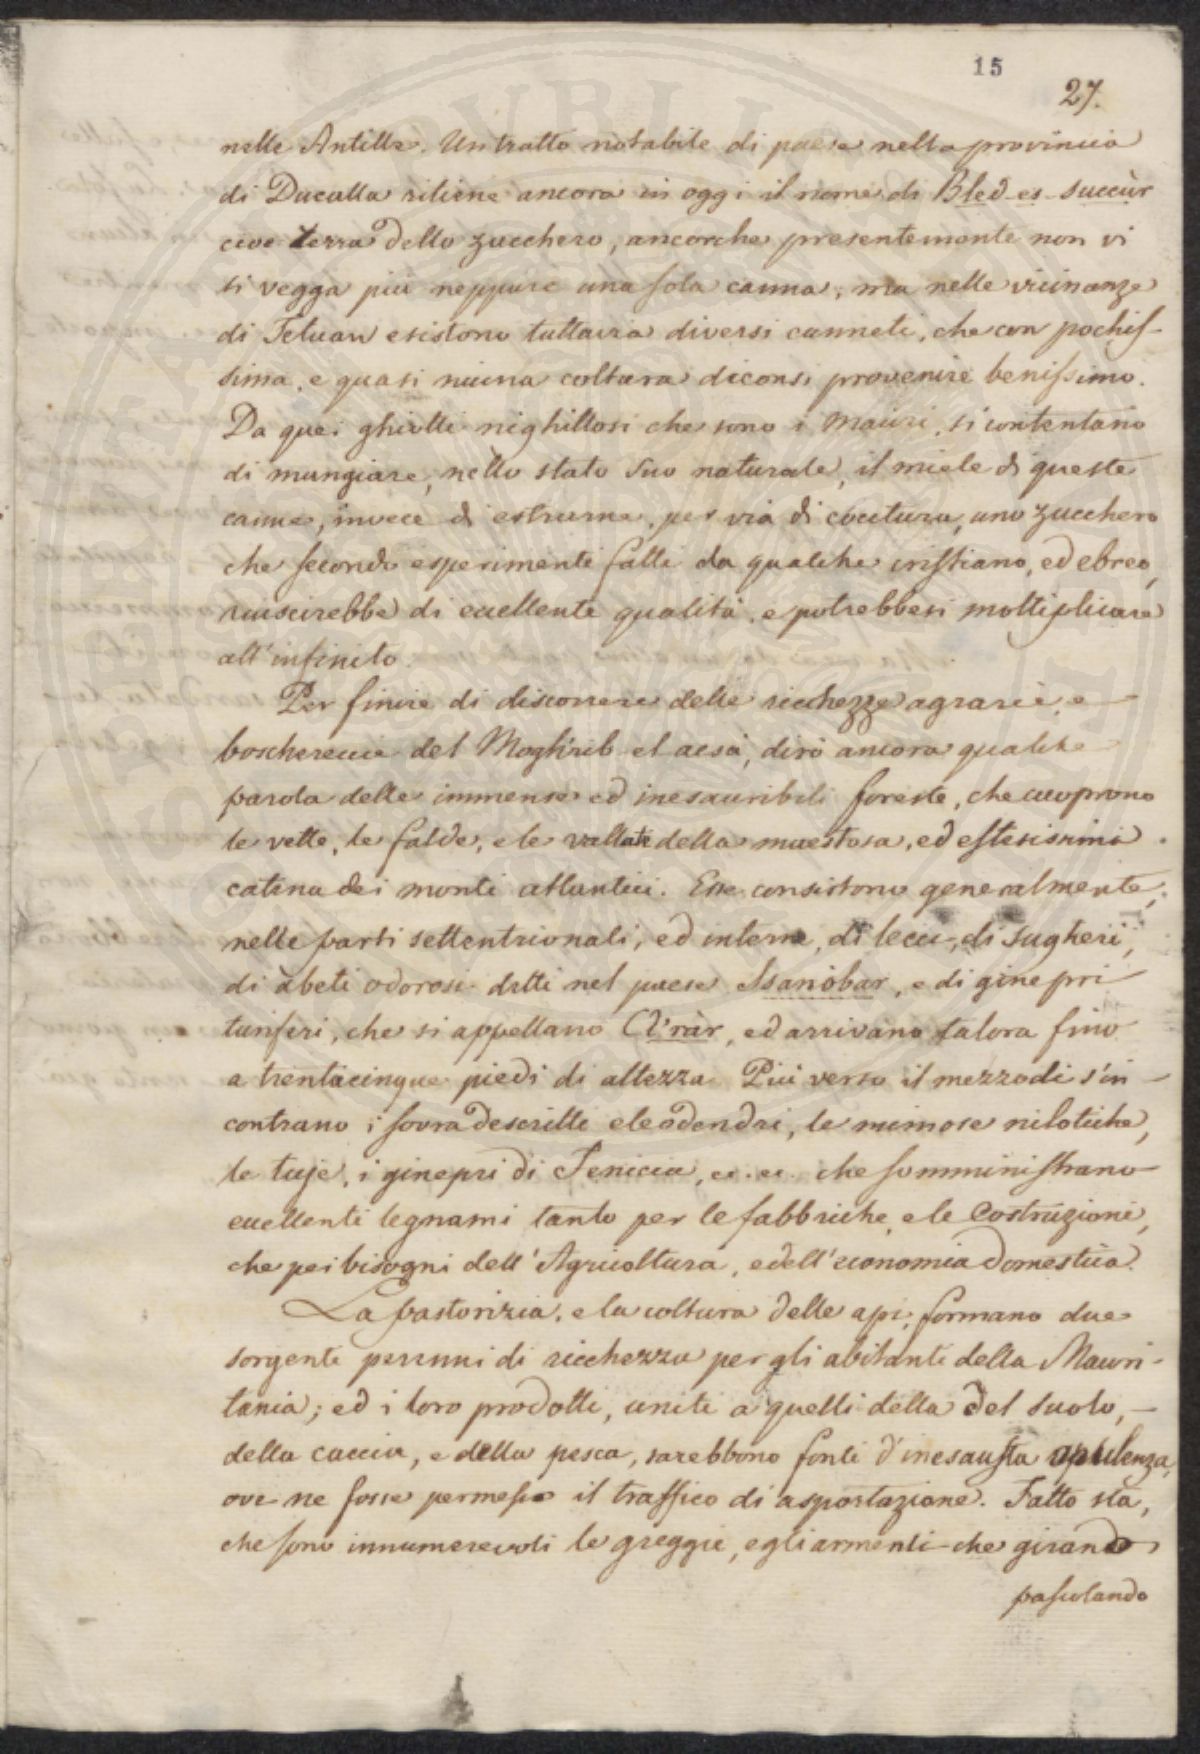 15
27.
nelle Antille. Un tratto notabile di paese nella provincia
di Ducalla ritiene ancora in oggi il nome di Bled-es-succùr
cioè terra dello zucchero, ancorche presentemente non vi
si vegga più neppure una sola canna; ma nelle vicinanze
di Tetuan esistono tuttavia diversi canneti, che con pochis-
sima, e quasi niuna coltura diconsi provenire benissimo.
Da quei ghiotti nighittosi che sono i Mauri, si contentano
di mangiare, nello stato suo naturale, il miele di queste
canne, invece di estrarne, per via di cocitura, uno zucchero
che secondo esperimenti fatti da qualche cristiano, ed ebreo,
riuscirebbe di eccellente qualità, e potrebbesi moltiplicare
all'infinito.
Per finire di discorrere delle ricchezze agrarie, e
boschereccie del Moghrib el acsà, dirò ancora qualche
parola delle immense ed inesauribili foreste, che cuoprono
le vette, le falde, e le vallate della maestosa, ed estesissima
catena dei monti atlantici. Esse consistono generalmente,
nelle parti settentrionali, ed interne, di lecci, di sugheri,
di abeti odorosi detti nel paese Ssanòbar, e di ginepri
turiferi, che si appellano Aràr, ed arrivano talora fino
a trentacinque piedi di altezza. Più verso il mezzodi s'in-
contrano i sovradescritti eleodendri, le mimose nilotiche,
le tuje, i ginepri di Fenicia, ec. ec. che somministrano
eccellenti legnami tanto per le fabbriche, e le costruzioni,
che pei bisogni dell'Agricoltura, e dell'economia domestica.
La pastorizia, e la coltura delle api, formano due
sorgenti perenni di ricchezza per gli abitanti della Mauri-
tania; ed i loro prodotti, uniti a quelli della del suolo,
della caccia, e della pesca, sarebbono fonti d'inesausta opulenza,
ove ne fosse permesso il traffico di asportazione. Fatto sta,
che sono innumerevoli le greggie, e gli armenti che girando
pascolando